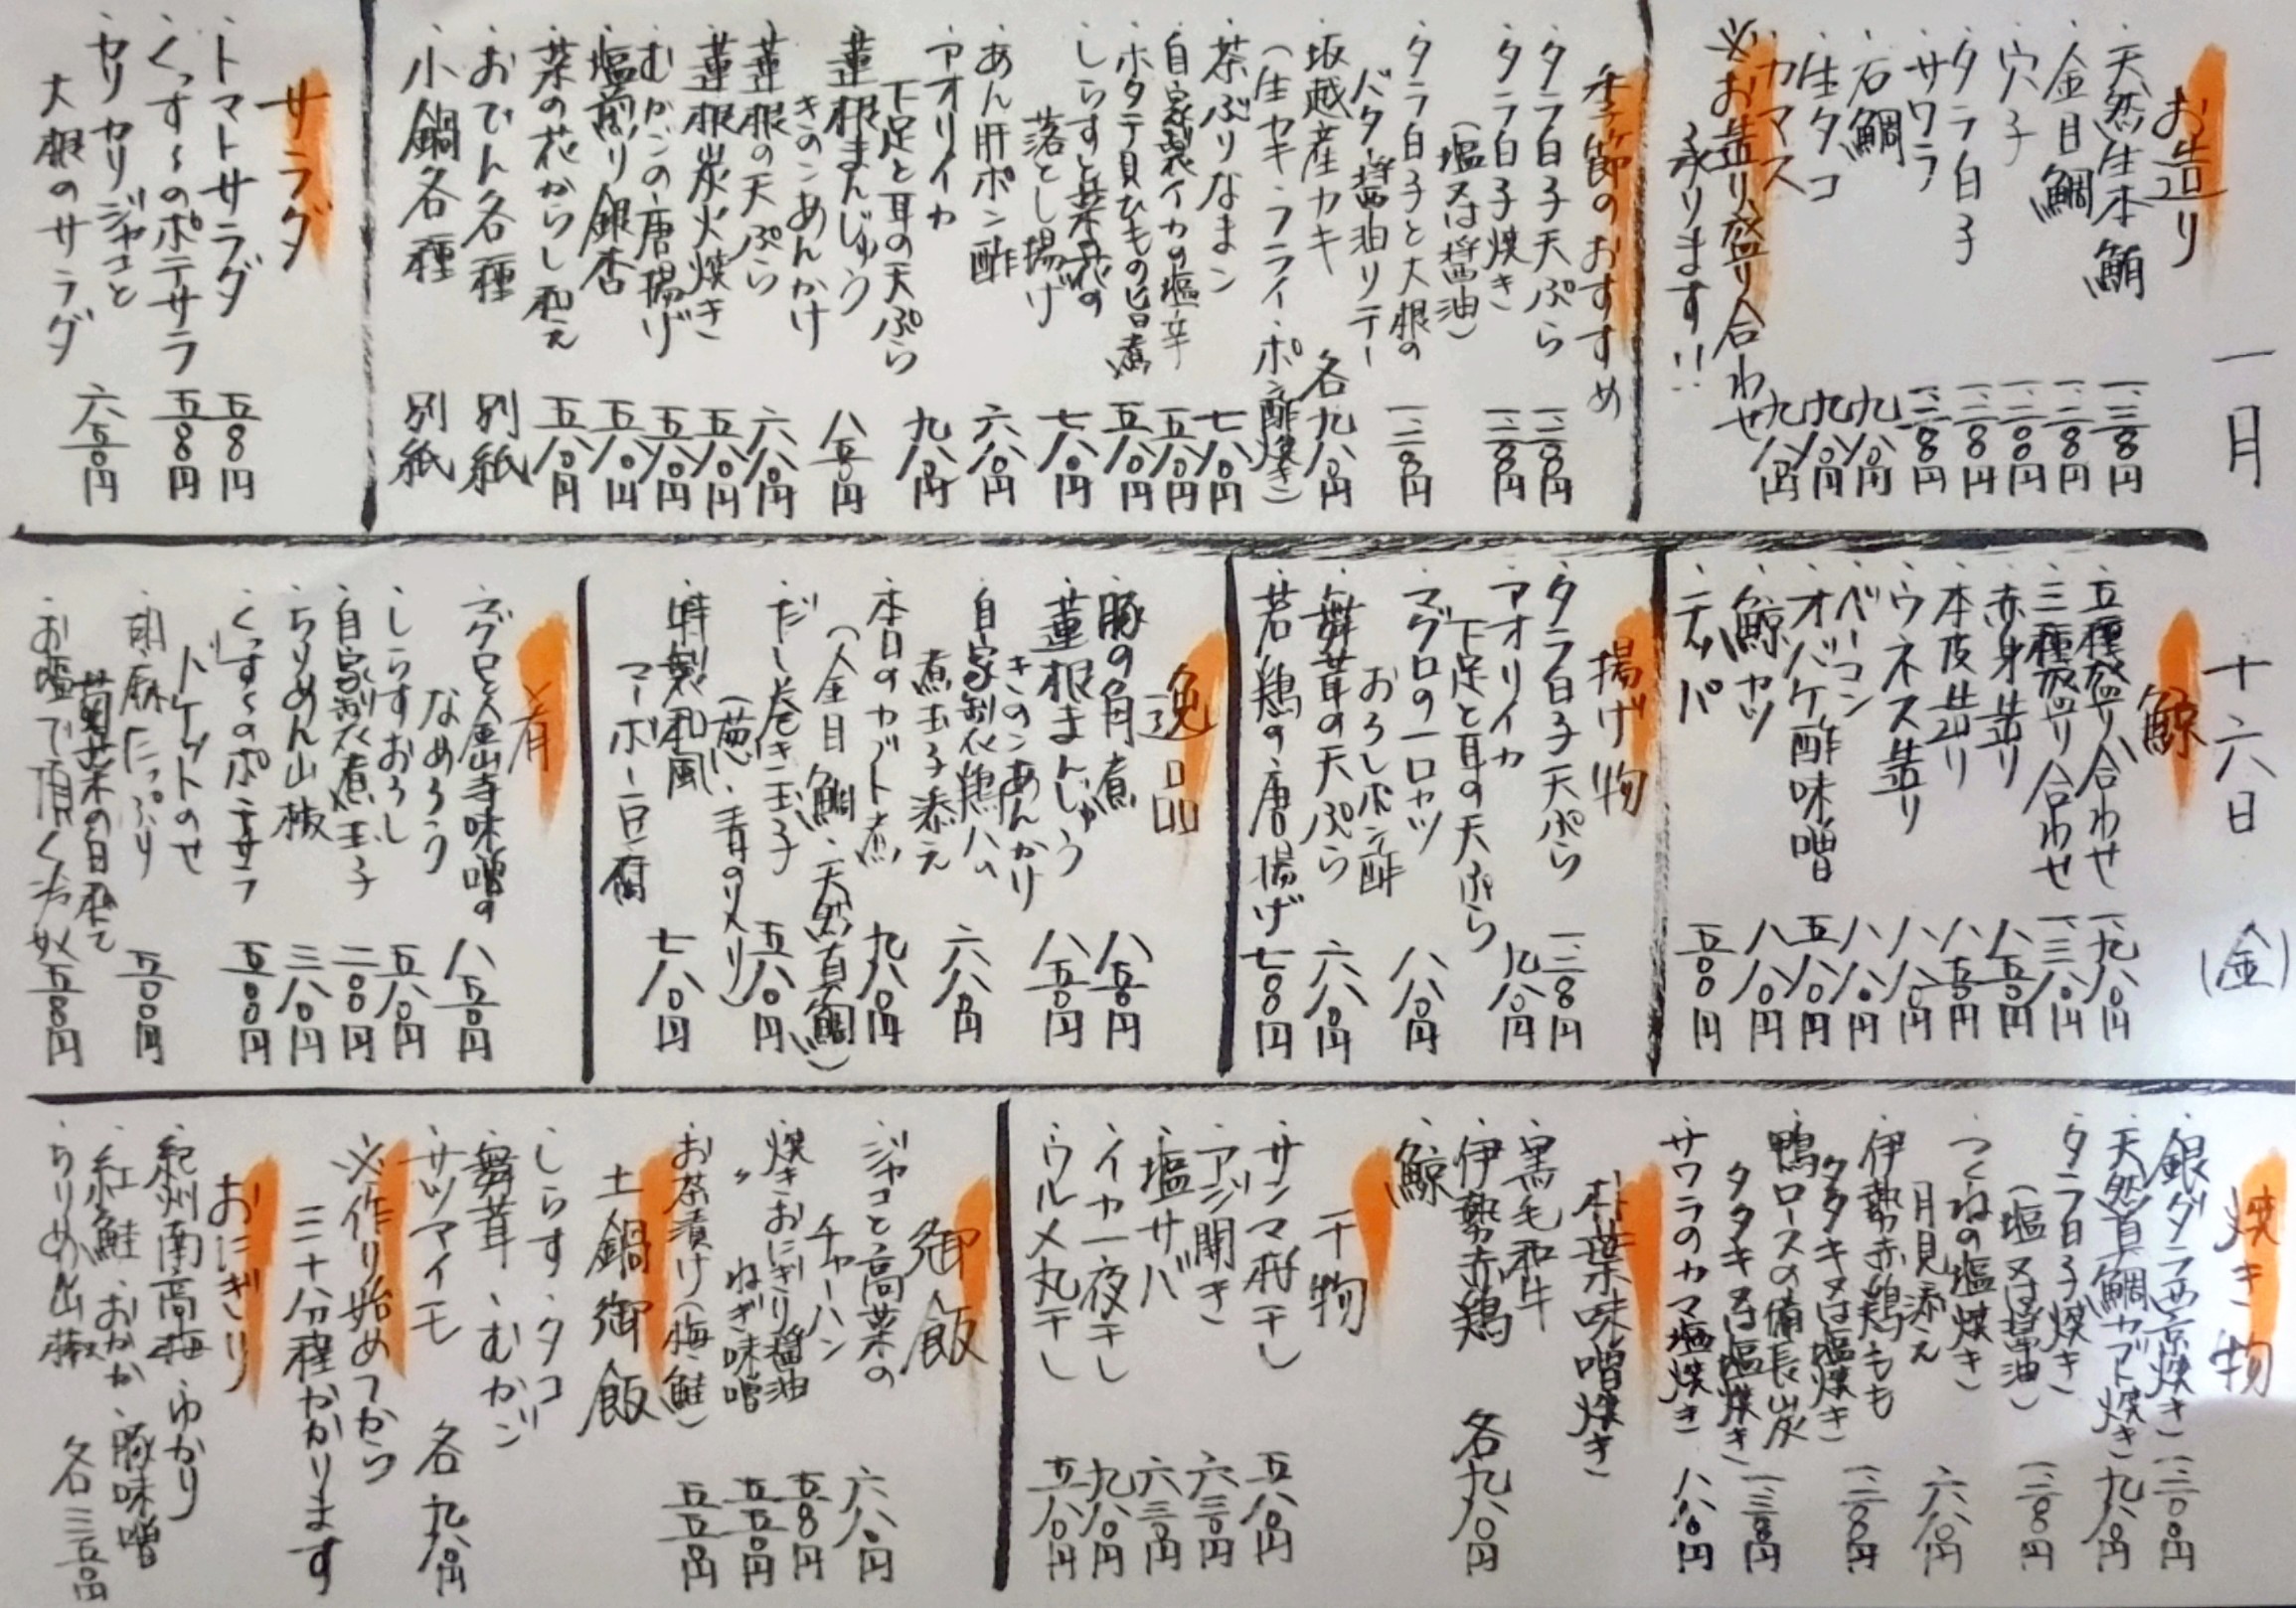 一月 十六日 (金)
お造り
・天然生本鮪 一、三〇〇円
・金目鯛 一、二〇〇円
・穴子 一、二〇〇円
・タラ白子 一、三〇〇円
・サワラ 一、二〇〇円
・石鯛 九八〇円
・生タコ 九八〇円
・カマス 九八〇円
※お造り盛り合わせ
承ります!!
季節のおすすめ
・タラ白子天ぷら 一、三〇〇円
・タラ白子焼き 一、三〇〇円
(塩又は醤油)
・タラ白子と大根の
バター醤油ソテー 一、二〇〇円
・坂越産カキ 各九八〇円
(生カキ・フライ・ポン酢焼き)
・茶ぶりなまこ 七八〇円
・自家製イカの塩辛 五八〇円
・ホタテ貝ひもの旨煮 五八〇円
・しらすと菜の花の
落とし揚げ 七八〇円
・あん肝ポン酢 六八〇円
・アオリイカ
下足と耳の天ぷら 九八〇円
・蓮根まんじゅう
きのこあんかけ 八五〇円
・蓮根の天ぷら 六八〇円
・蓮根炭火焼き 五八〇円
・むかごの唐揚げ 五八〇円
・塩煎り銀杏 五八〇円
・菜の花からし和え 五八〇円
・おでん各種 別紙
・小鍋各種 別紙
サラダ
・トマトサラダ 五〇〇円
・くっす〜のポテサラ 五〇〇円
・セリカリジャコと
大根のサラダ 六五〇円
鯨
・五種盛り合わせ 一、九八〇円
・三種盛り合わせ 一、三八〇円
・赤身造り 八五〇円
・本皮造り 八五〇円
・ウネス造り 八八〇円
・ベーコン 八八〇円
・オバケ酢味噌 五八〇円
・鯨カツ 八八〇円
・テッパ 五〇〇円
揚げ物
・タラ白子天ぷら 一、三〇〇円
・アオリイカ
下足と耳の天ぷら 九八〇円
・マグロの一口カツ
おろしポン酢 八八〇円
・舞茸の天ぷら 六八〇円
・若鶏の唐揚げ 七〇〇円
逸品
・豚の角煮 八五〇円
・蓮根まんじゅう
きのこあんかけ 八五〇円
・自家製鶏ハム
煮玉子添え 六八〇円
・本日のカブト煮 九八〇円
(金目鯛・天然真鯛)
・だし巻き玉子 五八〇円
(葱・青のり入り)
・特製和風
マーボー豆腐 七八〇円
肴
・マグロと金山寺味噌の
なめろう 八五〇円
・しらすおろし 五八〇円
・自家製煮玉子 二〇〇円
・ちりめん山椒 三八〇円
・くっす〜のポテサラ 五〇〇円
バゲットのせ
・胡麻たっぷり
菊菜の白和え 五〇〇円
・お塩で頂く冷奴 五〇〇円
焼き物
・銀ダラ西京焼き 一、三〇〇円
・天然真鯛カブト焼き 九八〇円
・タラ白子焼き
(塩又は醤油) 一、三〇〇円
・つくねの塩焼き
月見添え 六八〇円
・伊勢赤鶏もも
タタキ又は塩焼き 一、二〇〇円
・鴨ロースの備長炭
タタキ又は塩焼き 一、三〇〇円
・サワラのカマ塩焼き 八八〇円
朴葉味噌焼き
・黒毛和牛
・伊勢赤鶏 各九八〇円
・鯨
干物
・サンマ糀干し 五八〇円
・アジ開き 六三〇円
・塩サバ 六三〇円
・イカ一夜干し 九八〇円
・ウルメ丸干し 五八〇円
御飯
・ジャコと高菜の
チャーハン 六八〇円
・焼きおにぎり醤油 五〇〇円
・〃 ねぎ味噌 五五〇円
・お茶漬け(梅・鮭) 五五〇円
土鍋御飯
・しらす・タコ
・舞茸・むかご
・サツマイモ 各九八〇円
※作り始めてから
三十八分程かかります
おにぎり
・紀州南高梅・ゆかり
・紅鮭・おかか・豚味噌
・ちりめん山椒 各三五〇円